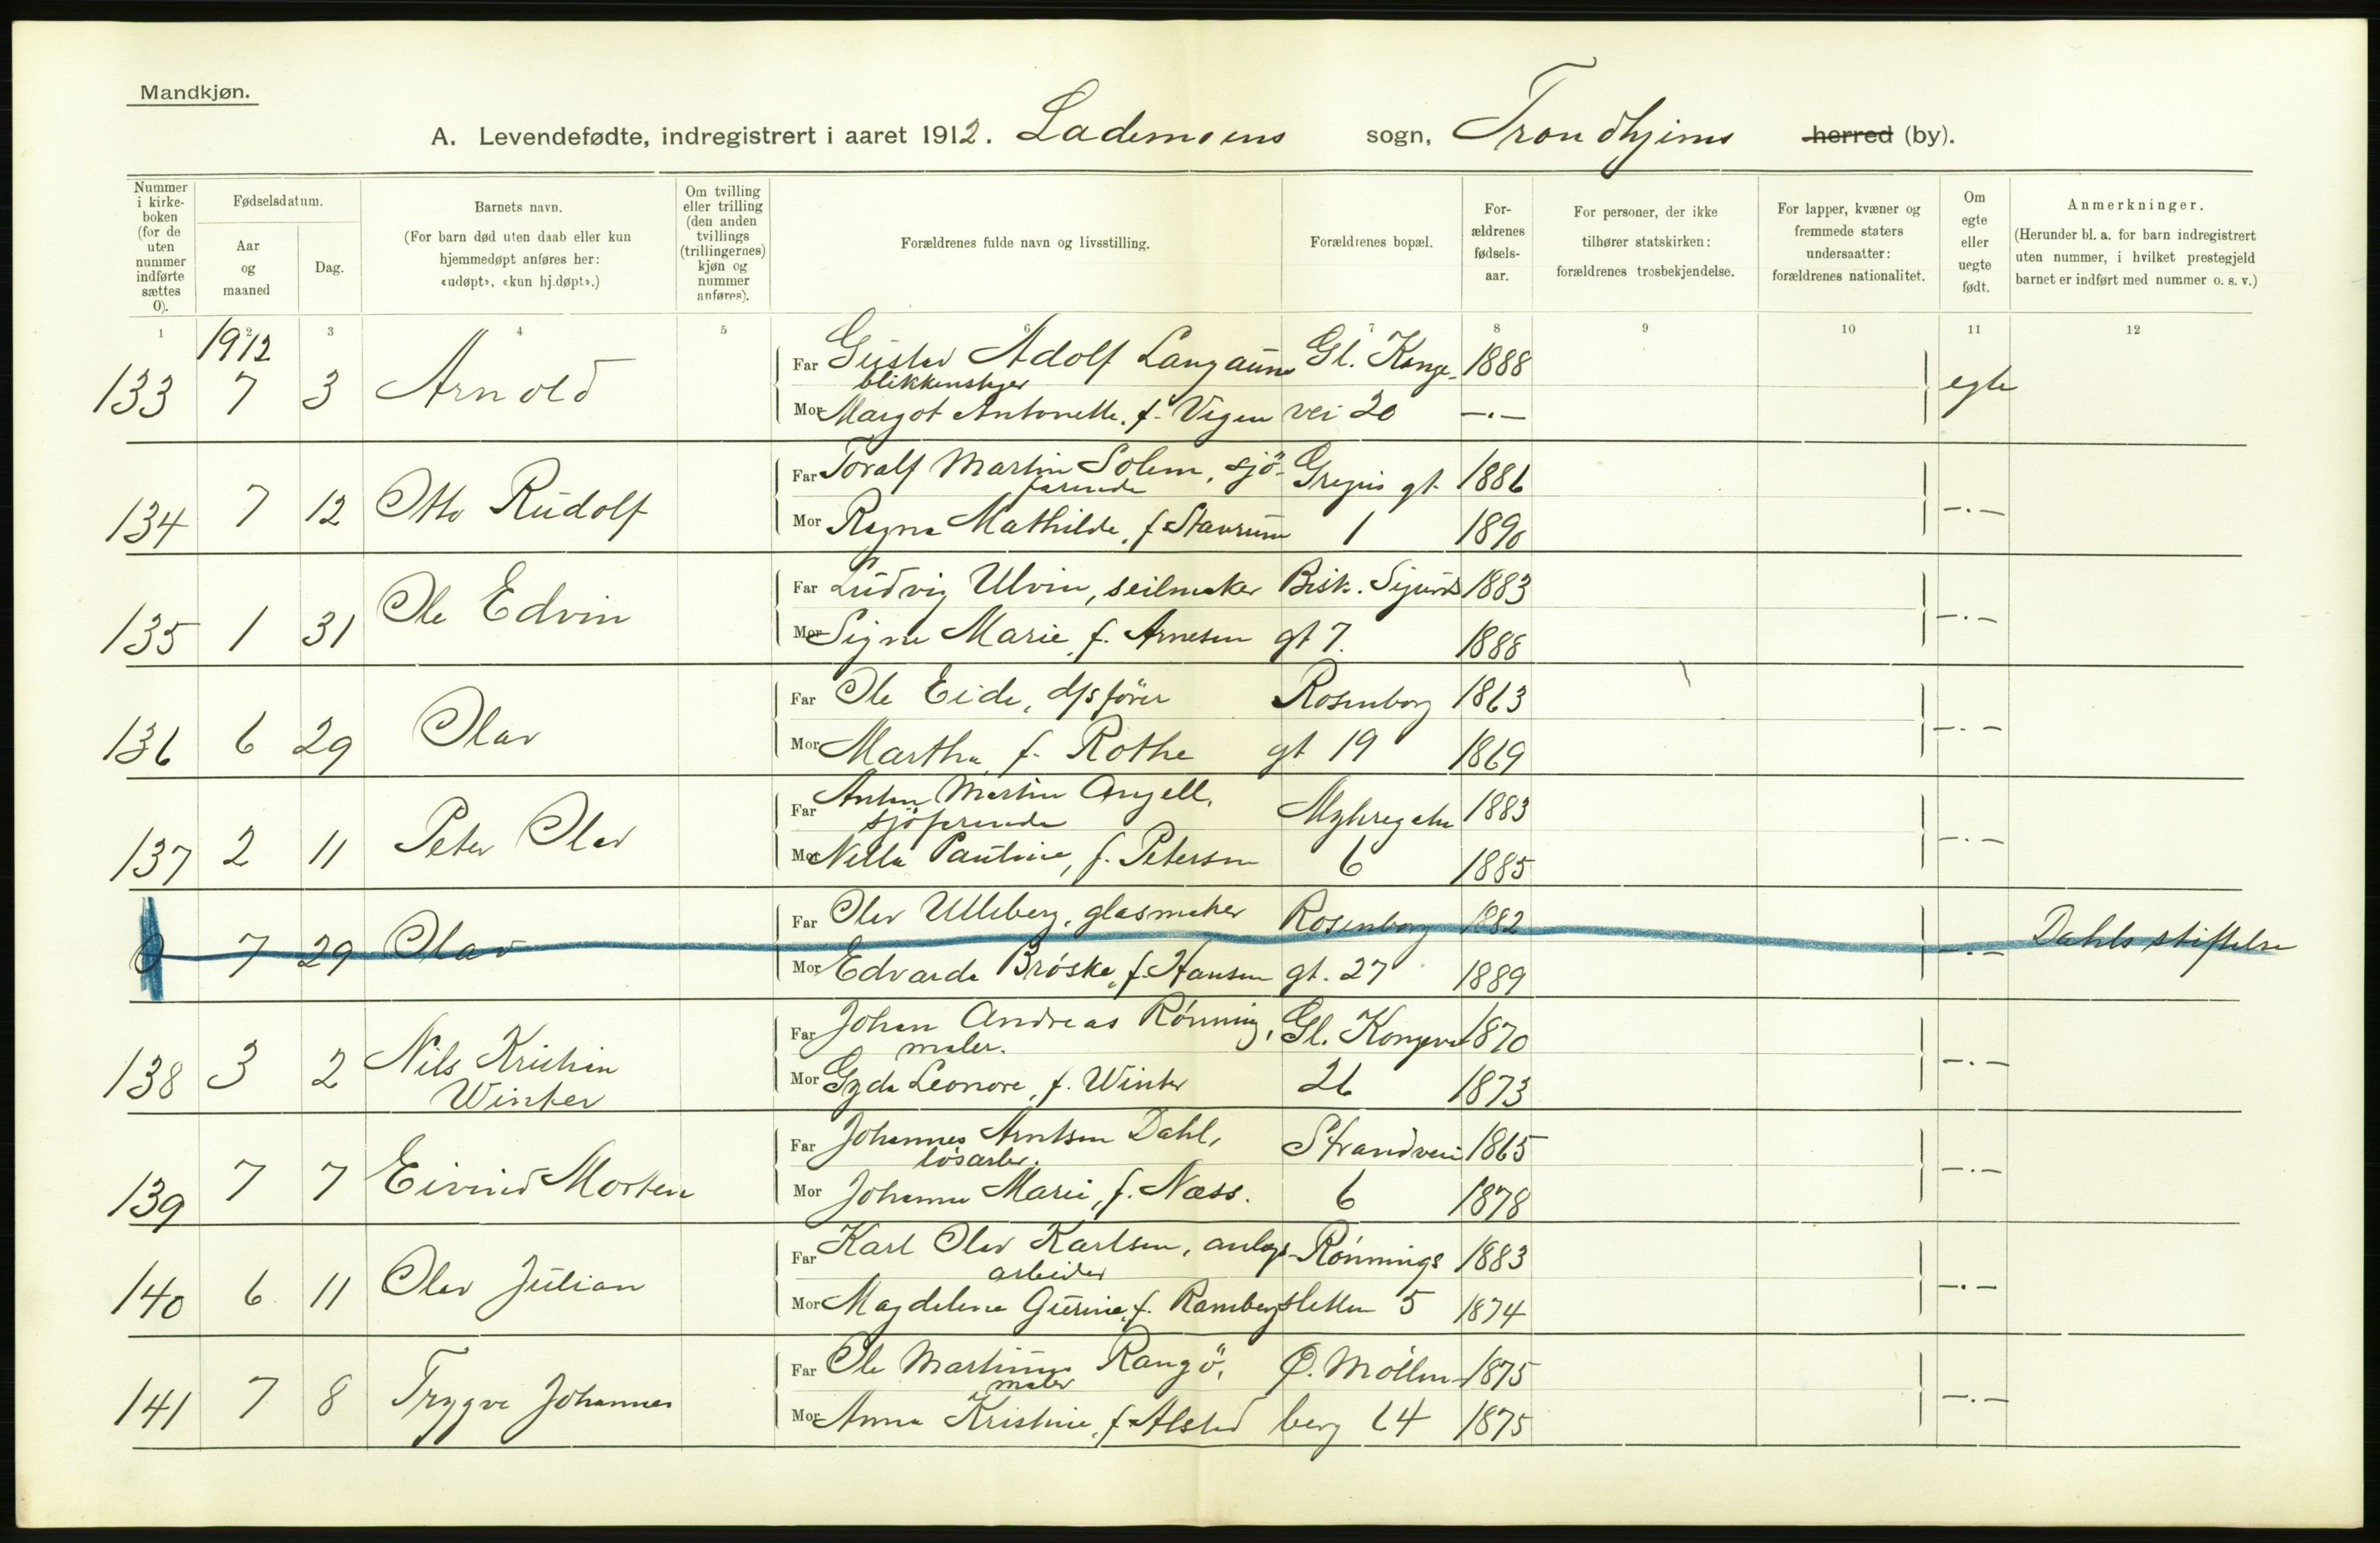 Mandkjøn.
A. Levendefødte, indregistrert i aaret 1912. Lademoens sogn, Trondhjems herred (by).
Nummer i kirke-boken (for de uten nummer indførte sættes 0).
Fødselsdatum.
Aar og maaned
Dag.
Barnets navn.
(For barn død uten daab eller kun hjemmedøpt anføres her: «udøpt», «kun hj.døpt».)
Om tvilling eller trilling (den anden tvillings (trillingernes) kjøn og nummer anføres).
Forældrenes fulde navn og livsstilling.
Forældrenes bopæl.
For-ældrenes fødsels-aar.
For personer, der ikke tilhører statskirken: forældrenes trosbekjendelse.
For lapper, kvæner og fremmede staters undersaatter: forældrenes nationalitet.
Om egte eller uegte født.
Anmerkninger.
(Herunder bl. a. for barn indregistrert uten nummer, i hvilket prestegjeld barnet er indført med nummer o. s. v.)
1 2 3 4 5 6 7 8 9 10 11 12
1912
133 7 3 Arnold Far Gustav Adolf Langaune Gl. Konge- 1888 egte
blikkenslager
Mor Margot Antonette, f. Vigen vei 20 —.—
134 7 12 Otto Rudolf Far Toralf Martin Solem, sjö- Gregus gt. 1886 —.—
farende
Mor Ragna Mathilde, f. Staurum 1 1890
135 1 31 Ole Edvin Far Ludvig Ulvin, seilmaker Bisk. Sigurds 1883 —.—
Mor Signe Marie, f. Arnesen gt 7. 1888
136 6 29 Olav Far Ole Eide, d/s förer Rosenborg 1863 —.—
Mor Martha f. Rothe gt 19 1869
137 2 11 Peter Olav Far Anton Martin Angell, Myhregaten 1883 —.—
sjöfarende
Mor Nella Pauline, f. Petersen 6 1885
0 7 29 Olav Far Olav Ulleberg, glasmaker Rosenborg 1882 —.— Dahls stiftelse
Mor Edvarda Brøske, f. Hansen gt. 27 1889
138 3 2 Nils Kristian Far Johan Andreas Rønning, Gl. Kongevei 1870 —.—
Winter maler.
Mor Gyda Leonore, f. Winter 26 1873
139 7 7 Eivind Morten Far Johannes Arntsen Dahl, Strandveien 1865 —.—
løsarb.
Mor Johanna Marie, f. Næss. 6 1878
140 6 11 Olav Julian Far Karl Olav Karlsen, anlegs- Rønnings 1883 —.—
arbeider
Mor Magdelena Gurine, f. Ramberg sletten 5 1874
141 7 8 Trygve Johannes Far Ole Martinus Rangö, Ø. Møllen- 1875 —.—
maler
Mor Anna Kristine, f. Alstad berg 64 1875